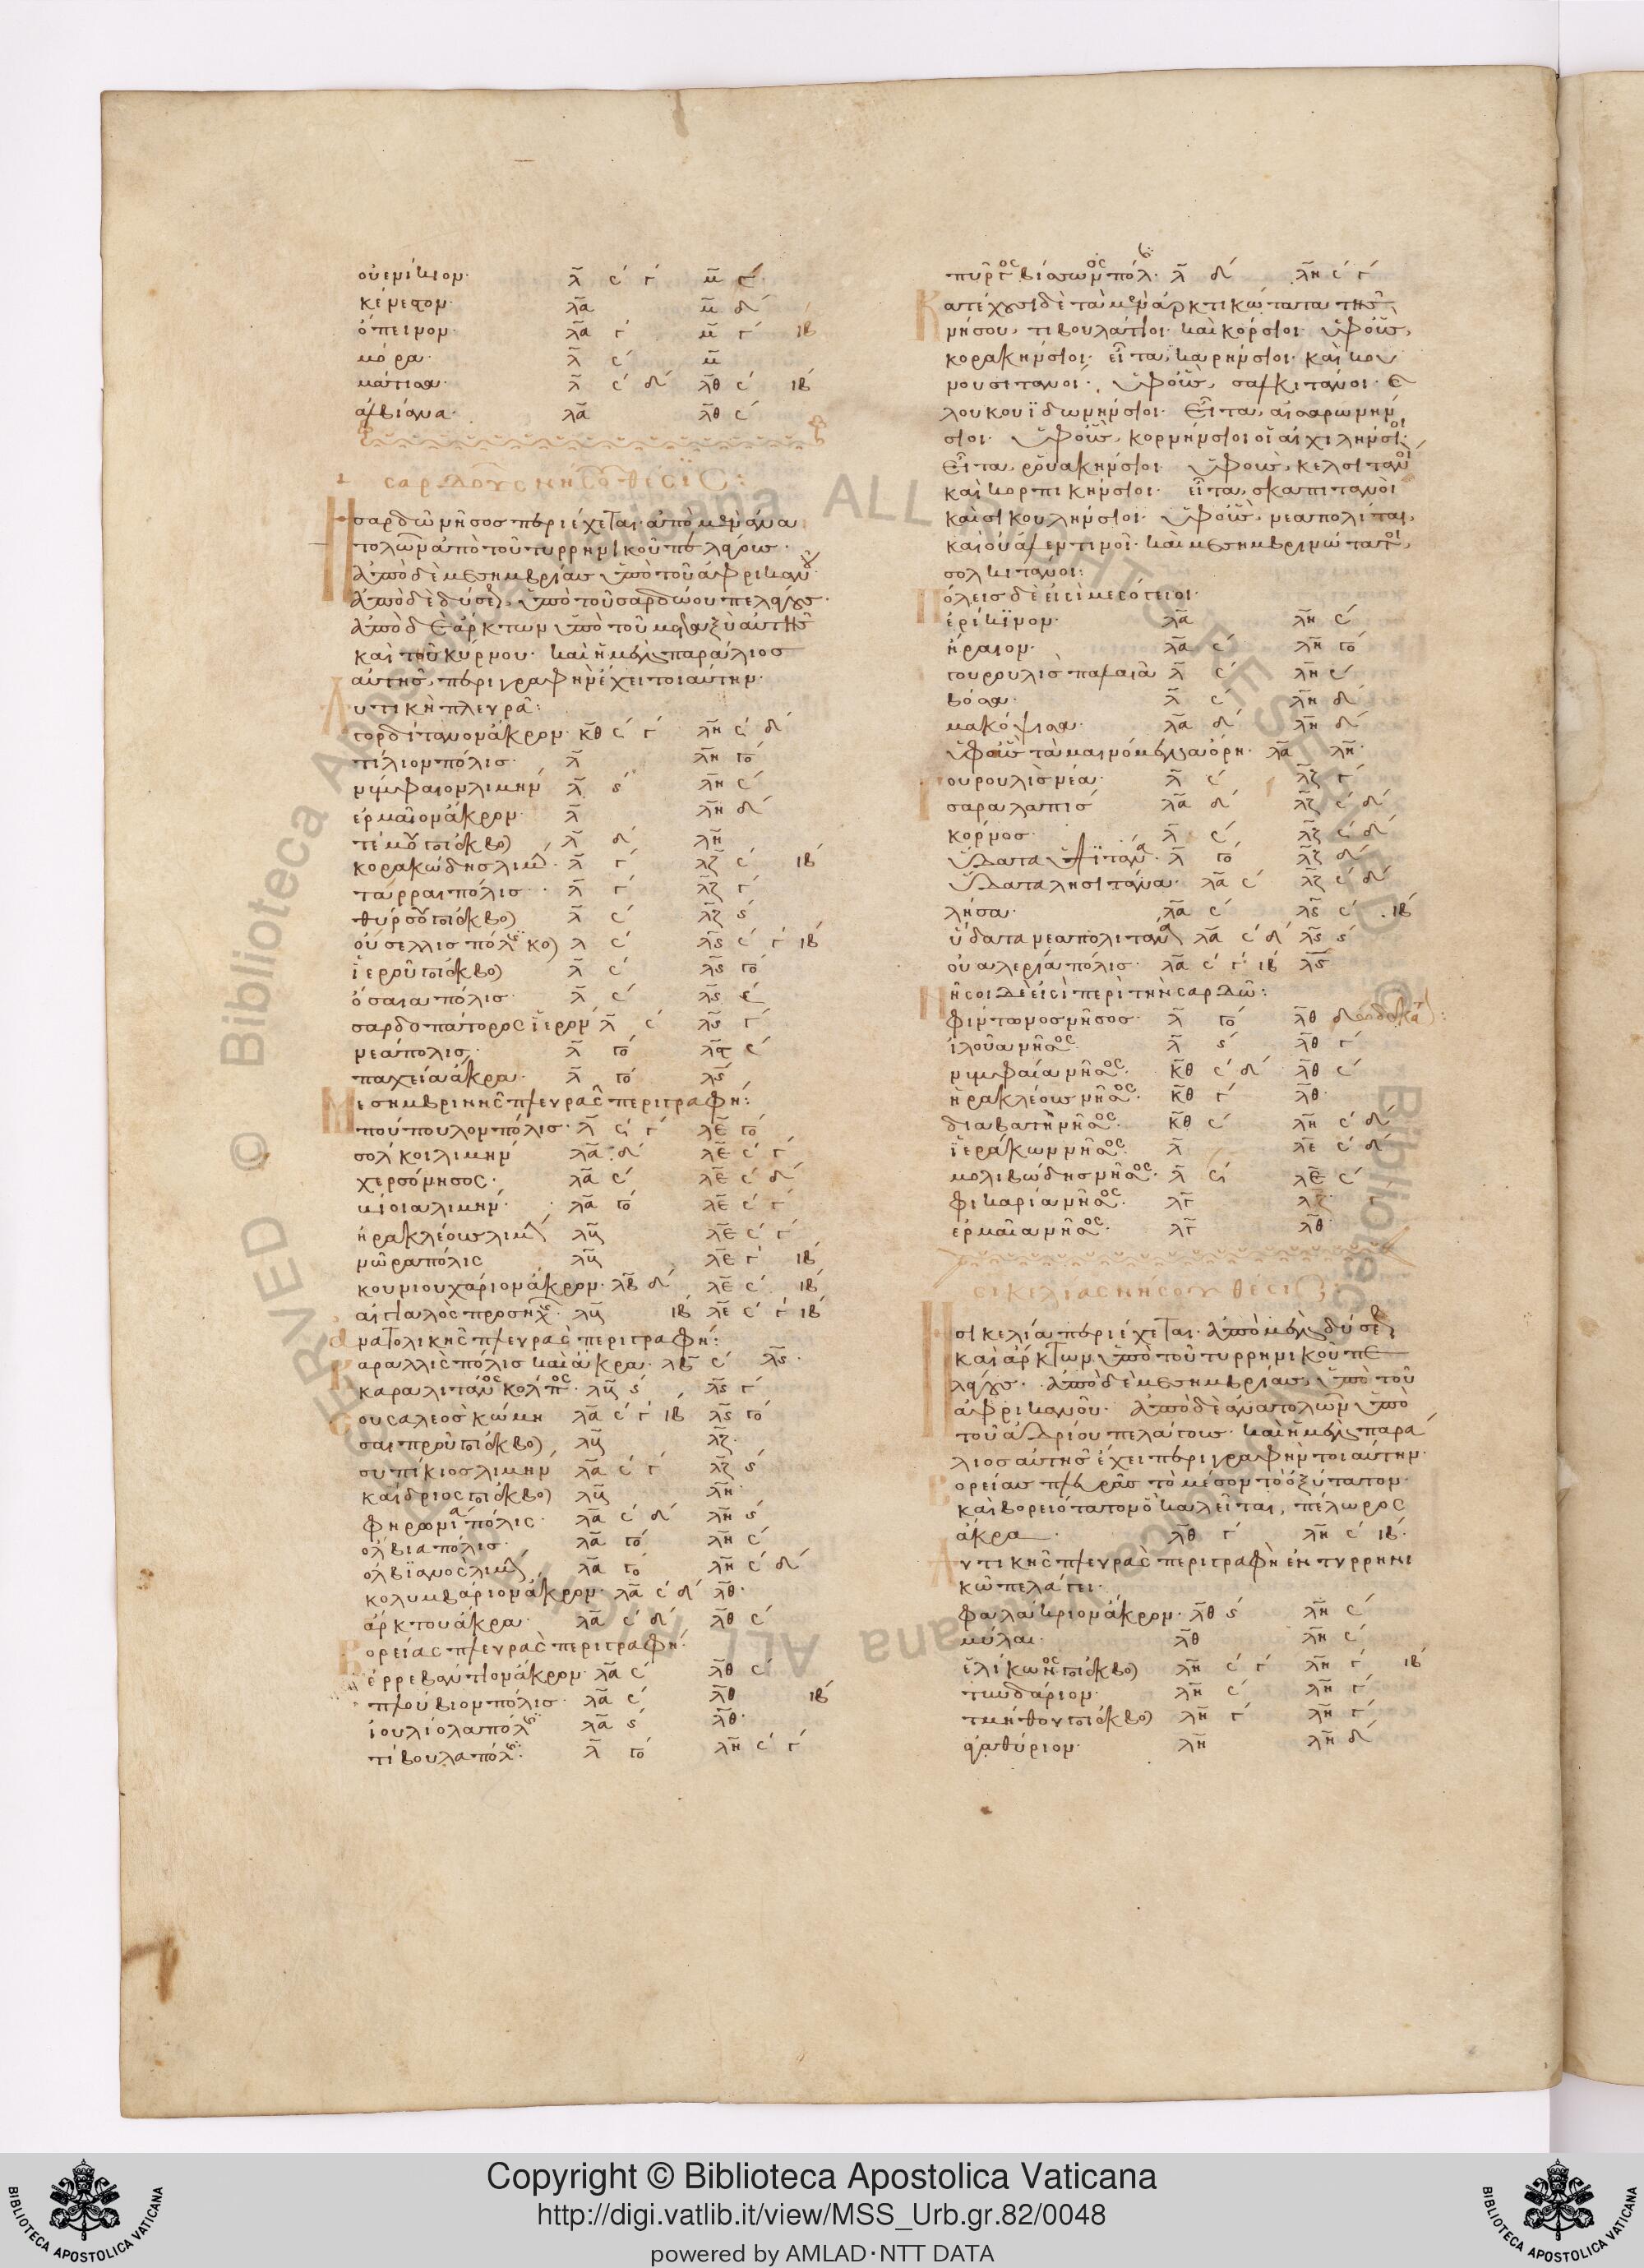 οὐινίκιον· λ̅ 𐅵΄ γ΄ μ̅ γ΄
κένεσον· λ̅α̅ μ̅ δ΄
ὄπεινον· λ̅α̅ γ΄ μ̅ γ΄ ιβ΄
μόρα· λ̅ 𐅵΄ μ̅
μάτισα· λ̅ 𐅵΄ δ΄ λ̅θ̅ 𐅵΄ ιβ΄
ἀλβίανα· λ̅α̅ λ̅θ̅ 𐅵΄
σαρδοῦς νήσου θέσις:
Ἡ σαρδὼ νῆσος περιέχεται· ἀπὸ μὲν ἀνα
τολῶν ἀπὸ τοῦ τυρρηνικοῦ πελάγους·
ἀπὸ δὲ μεσημβρίας ὑπὸ τοῦ ἀφρικανοῦ·
ἀπὸ δὲ δύσεως, ὑπὸ τοῦ σαρδώου πελάγους·
ἀπὸ δὲ ἄρκτων ὑπὸ τοῦ μεταξὺ αὐτῆς
καὶ τοῦ κύρνου· καὶ ἡ μὲν παράλιος
αὐτῆς, περιγραφὴν ἔχει τοιαύτην·
Δυτικὴ πλευρά:
γορδίτανον ἄκρον· κ̅θ̅ 𐅵΄ γ΄ λ̅η̅ 𐅵΄ δ΄
τίλιον πόλις· λ̅ λ̅η̅ γο΄
νύμφαιον λιμήν λ̅ ϛ΄ λ̅η̅ 𐅵΄
ἑρμαῖον ἄκρον· λ̅ λ̅η̅ δ΄
τέμου ποτ ἐκβο) λ̅ δ΄ λ̅η̅
κορακώδης λιμ· λ̅ γ΄ λ̅ζ̅ 𐅵΄ ιβ΄
τάρραι πόλις· λ̅ γ΄ λ̅ζ̅ γ΄
θύρσου ποτ ἐκβο) λ̅ 𐅵΄ λ̅ζ̅ ϛ΄
οὐσελλις πόλις κο) λ̅ 𐅵΄ λ̅ϛ̅ 𐅵΄ γ΄ ιβ΄
ἱεροῦ ποτ ἐκβο) λ̅ 𐅵΄ λ̅ϛ̅ γο΄
ὄσαια πόλις· λ̅ 𐅵΄ λ̅ϛ̅ 𐅵΄
σαρδοπάτορος ἱερόν λ̅ 𐅵΄ λ̅ϛ̅ γ΄
νεάπολις· λ̅ γο΄ λ̅ϛ̅ 𐅵΄
παχεία ἄκρα· λ̅ γο΄ λ̅ϛ̅
Μεσημβρινῆς πλευρᾶς περιγραφή:
πούπουλον πόλις· λ̅ 𐅵΄ γ΄ λ̅ε̅ γο΄
σόλκοι λιμήν λ̅α̅ δ΄ λ̅ε̅ 𐅵΄ γ΄
χερσόνησος· λ̅α̅ 𐅵΄ λ̅ε̅ 𐅵΄ δ΄
κίοια λιμήν· λ̅α̅ γο΄ λ̅ε̅ 𐅵΄ γ΄
ἡρακλέους λιμ λ̅β̅ λ̅ε̅ 𐅵΄ γ΄
νῶρα πόλις λ̅β̅ λ̅ε̅ γ΄ ιβ΄
κουνιουχάριον ἄκρον· λ̅β̅ δ΄ λ̅ε̅ 𐅵΄ ιβ΄
αἰγιαλὸς προσηχ· λ̅β̅ ιβ΄ λ̅ε̅ 𐅵΄ γ΄ ιβ΄
ἀνατολικῆς πλευρᾶς περιγραφή:
Καραλλὶς πόλις καὶ ἄκρα· λ̅β̅ 𐅵΄ λ̅ϛ̅·
καραλιτανος κόλπος· λ̅β̅ ϛ΄ λ̅ϛ̅ γ΄
Σουσαλεος κώμη λ̅α̅ 𐅵΄ γ΄ ιβ΄ λ̅ϛ̅ γο΄
σαιπροῦ ποτ ἐκβο) λ̅β̅ λ̅ζ̅·
συπίκιος λιμήν λ̅α̅ 𐅵΄ γ΄ λ̅ζ̅ ϛ΄
καίδριος ποτ ἐκβο) λ̅β̅ λ̅η̅·
φηρωνια πόλις· λ̅α̅ 𐅵΄ δ΄ λ̅η̅ ϛ΄
ὀλβια πόλις· λ̅α̅ γο΄ λ̅η̅ 𐅵΄
ὀλβιανὸς λιμ λ̅α̅ γο΄ λ̅η̅ 𐅵΄ δ΄
κολυμβάριον ἄκρον· λ̅α̅ 𐅵΄ δ΄ λ̅θ̅·
ἄρκτου ἄκρα· λ̅α̅ 𐅵΄ δ΄ λ̅θ̅ 𐅵΄
Βορείας πλευρᾶς περιγραφή·
ἐρρεβάντιον ἄκρον· λ̅α̅ 𐅵΄ λ̅θ̅ 𐅵΄
πλούβιον πόλις· λ̅α̅ 𐅵΄ λ̅θ̅ ιβ΄
ἰουλίολα πόλις λ̅α̅ ϛ΄ λ̅θ̅·
τίβουλα πόλις· λ̅ γο΄ λ̅η̅ 𐅵΄ γ΄
πύργος βίσσωνος πόλ· λ̅ δ΄ λ̅η̅ 𐅵΄ γ΄
Κατέχουσι δὲ τὰ μὲν ἀρκτικώτατα τῆς
νήσου, τιβουλάτιοι· καὶ κόρσιοι· ὑφ οὓς,
κορακήνσιοι· εἶτα, καρήνσιοι· καὶ κου
νουσιτανοί· ὑφ οὓς, σαλκιτάνοι· ἐ
λουκουϊδωνήνσιοι· Εἶτα, αἰσαρωνήν
σιοι· ὑφ οὓς, κορνήνσιοι οἱ αἰχιλήνσιοι·
Εἶτα, ρουακήνσιοι· ὑφ οὓς, κελσιτανοὶ
καὶ κορπικήνσιοι· εἶτα, σκαπιτανοὶ
καὶ σικουλήνσιοι· ὑφ οὓς, νεαπολίται,
καὶ οὐαλεντινοὶ· καὶ μεσημβρινώτατοι,
σολκιτάνοι:
Πόλεις δὲ εἰσὶ μεσόγειοι·
ἐρίκινον· λ̅α̅ λ̅η̅ 𐅵΄
ἥραιον· λ̅α̅ 𐅵΄ λ̅η̅ γο΄
γουρουλὶς παλαιὰ λ̅ 𐅵΄ λ̅η̅ 𐅵΄
βόσα· λ̅ 𐅵΄ λ̅η̅ δ΄
μακόψισα· λ̅α̅ δ΄ λ̅η̅ δ΄
ὑφ οὓς τὰ μαινόμενα ὄρη· λ̅α̅ λ̅η̅·
Γουρουλὶς νέα· λ̅ 𐅵΄ λ̅ζ̅ γ΄
σαραλαπις λ̅α̅ δ΄ λ̅ζ̅ 𐅵΄ δ΄
κόρνος· λ̅ 𐅵΄ λ̅ζ̅ 𐅵΄ δ΄
ὕδατα ὑψιτανα· λ̅ γο΄ λ̅ζ̅ δ΄
ὕδατα λησιτάνα· λ̅α̅ 𐅵΄ λ̅ζ̅ 𐅵΄ δ΄
λήσα· λ̅α̅ 𐅵΄ λ̅ϛ̅ 𐅵΄ ιβ΄
ὕδατα νεαπολιτανα λ̅α̅ 𐅵΄ δ΄ λ̅ϛ̅ ϛ΄
οὐαλερία πόλις· λ̅α̅ 𐅵΄ γ΄ ιβ΄ λ̅ϛ̅
Νῆσοι δὲ εἰσὶ περὶ τὴν σαρδώ:
φίντωνος νῆσος· λ̅ γο΄ λ̅θ̅
ἰλοῦα νῆσος· λ̅ ϛ΄ λ̅θ̅ γ΄
νυμφαία νῆσος· κ̅θ̅ 𐅵΄ δ΄ λ̅θ̅ 𐅵΄
ἡρακλέους νῆσος· κ̅θ̅ γ΄ λ̅θ̅·
διαβατὴ νῆσος· κ̅θ̅ 𐅵΄ λ̅η̅ 𐅵΄ δ΄
ἱεράκων νῆσος· λ̅ λ̅ε̅ 𐅵΄ δ΄
μολιβώδης νῆσος· λ̅ 𐅵΄ λ̅ε̅ 𐅵΄
φικαρία νῆσος· λ̅γ̅ λ̅ζ̅ γ΄
ἑρμαία νῆσος· λ̅γ̅ λ̅θ̅·
σικελίας νήσου θέσις:
Ἡ σικελία περιέχεται· ἀπὸ μὲν δύσεως
καὶ ἄρκτων ὑπὸ τοῦ τυρρηνικοῦ πε
λάγους· ἀπὸ δὲ μεσημβρίας, ὑπὸ τοῦ
ἀφρικανοῦ· ἀπὸ δὲ ἀνατολῶν ὑπὸ
τοῦ ἀδρίου πελάγους· καὶ ἡ μὲν παρά
λιος αὐτῆς ἔχει περιγραφὴν τοιαύτην·
Βορείας πλευρᾶς τὸ μέσον τὸ ὀξύτατον
καὶ βορειότατον ὃ καλεῖται, πέλωρος
ἄκρα· λ̅θ̅ γ΄ λ̅η̅ 𐅵΄ ιβ΄
Δυτικῆς πλευρᾶς περιγραφὴ ἐν τυρρηνι
κῶ πελάγει·
φαλάκριον ἄκρον· λ̅θ̅ ϛ΄ λ̅η̅ 𐅵΄
μύλαι· λ̅θ̅ λ̅η̅ 𐅵΄
ἑλίκωνος ποτ ἐκβο) λ̅η̅ 𐅵΄ γ΄ λ̅η̅ γ΄ ιβ΄
τυνδάριον· λ̅η̅ 𐅵΄ λ̅η̅ γ΄
τμήθου ποτ ἐκβο) λ̅η̅ γ΄ λ̅η̅ γ΄
ἀγαθύριον· λ̅η̅ λ̅η̅ δ΄
Copyright © Biblioteca Apostolica Vaticana
http://digi.vatlib.it/view/MSS_Urb.gr.82/0048
powered by AMLAD·NTT DATA
BIBLIOTECA APOSTOLICA VATICANA
BIBLIOTECA APOSTOLICA VATICANA